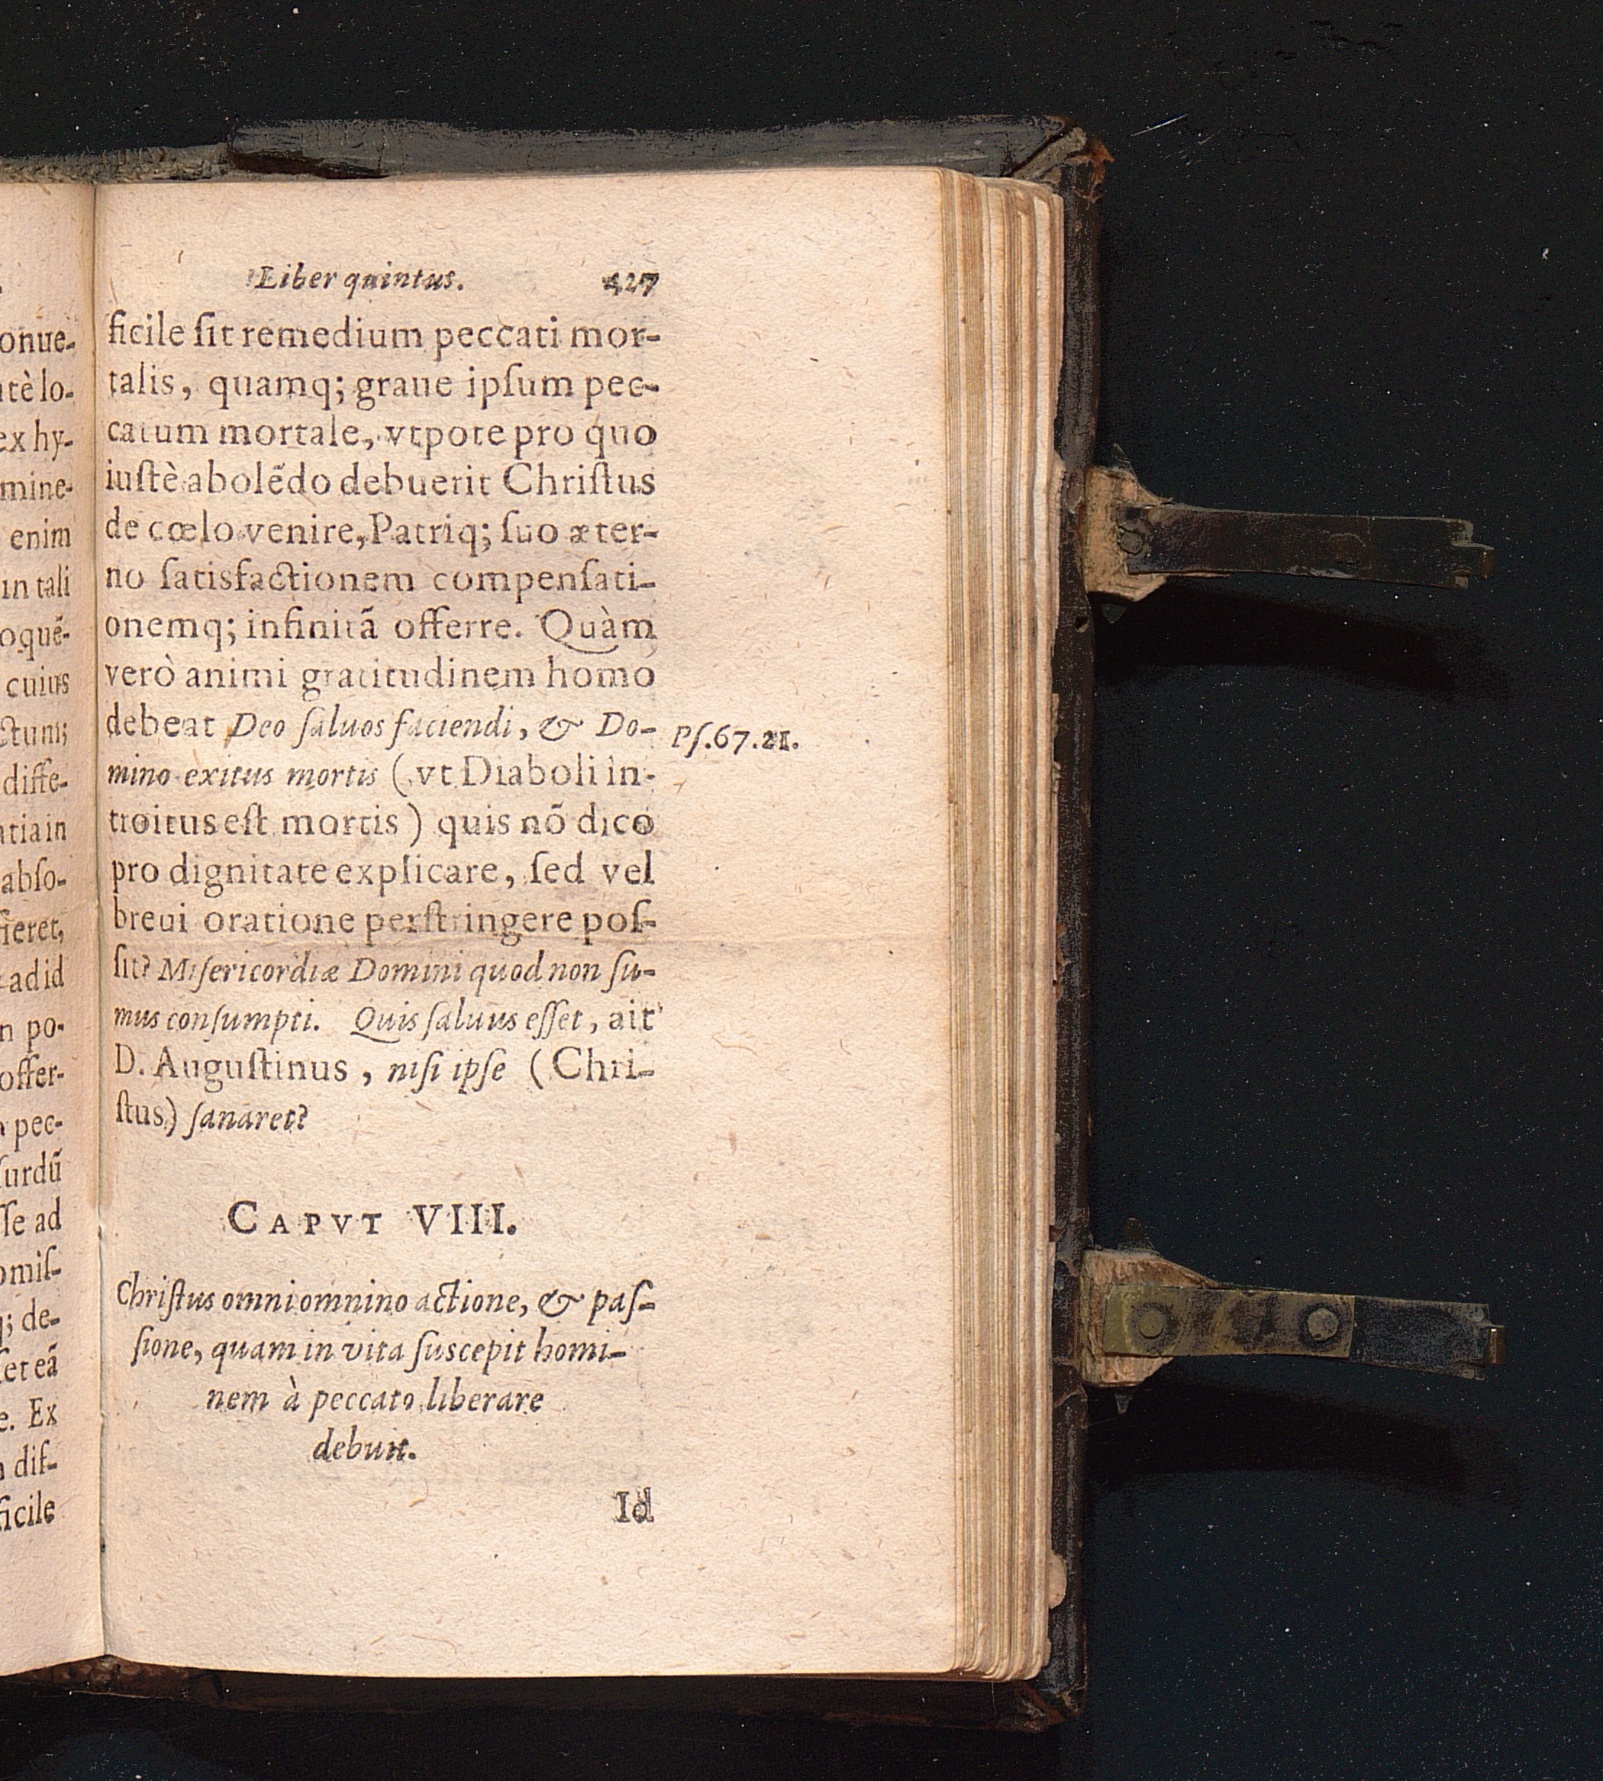 onue-
tè lo-
ex hy-
mine-
enim
in tali
oquẽ-
cuius
ctum;
diffe-
tia in
abſo-
fieret,
ad id
n po-
offer-
pec-
ſurdũ
ſſe ad
omiſ-
q; de-
ſet eã
e. Ex
diſ-
ficile
Liber quintus. 427
ficile ſit remedium peccati mor-
talis, quamq; graue ipſum pec-
catum mortale, vtpote pro quo
iuſtè abolẽdo debuerit Chriſtus
de cœlo venire, Patriq; ſuo æter-
no ſatisfactionem compenſati-
onemq; infinitã offerre. Quàm
verò animi gratitudinem homo
debeat Deo ſaluos faciendi, & Do-
Pſ.67.21.
mino exitus mortis (vt Diaboli in-
troitus eſt mortis) quis nõ dico
pro dignitate explicare, ſed vel
breui oratione perſtringere poſ-
ſit? Miſericordiæ Domini quod non ſu-
mus conſumpti. Quis ſaluus eſſet, ait
D. Auguſtinus, niſi ipſe (Chri-
ſtus) ſanaret?
CAPVT VIII.
Chriſtus omni omnino actione, & paſ-
ſione, quam in vita ſuscepit homi-
nem à peccato liberare
debuit.
Id